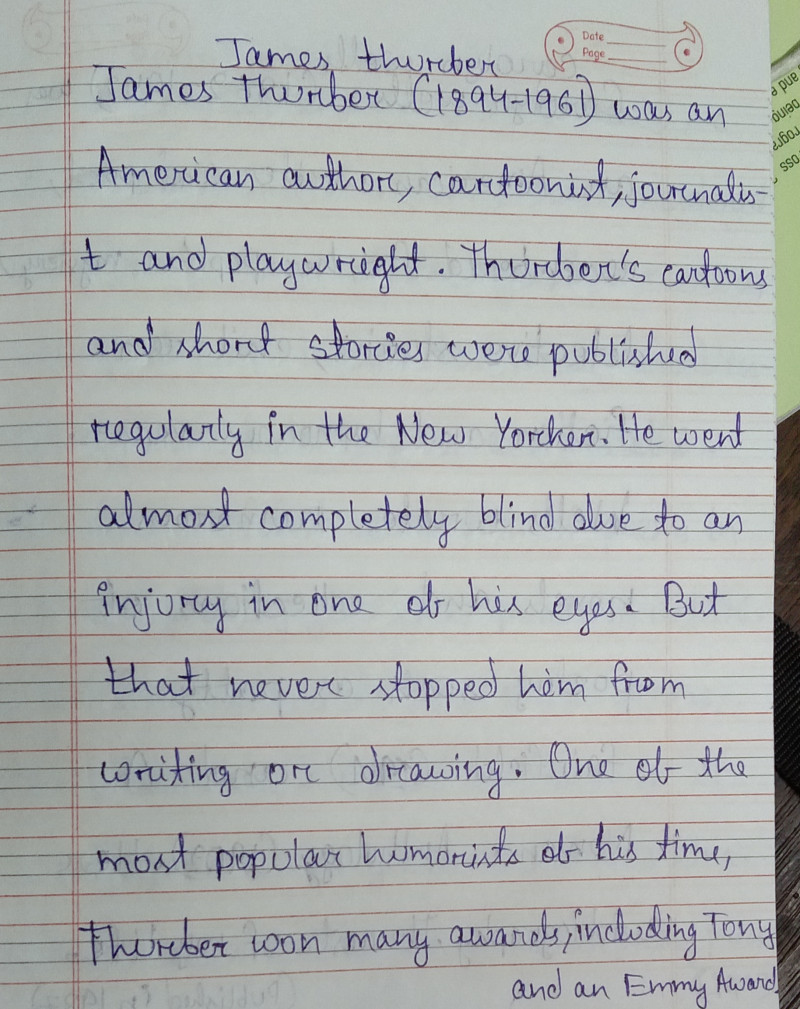 Date
Page
James thurber
James Thurber (1894-1961) was an
American author, cartoonist, journalis-
t and playwright. Thurber's cartoons
and short stories were published
regularly in the New Yorker. He went
almost completely blind due to an
injury in one of his eyes. But
that never stopped him from
writing or drawing. One of the
most popular humorists of his time,
Thurber won many awards, including Tony
and an Emmy Award.